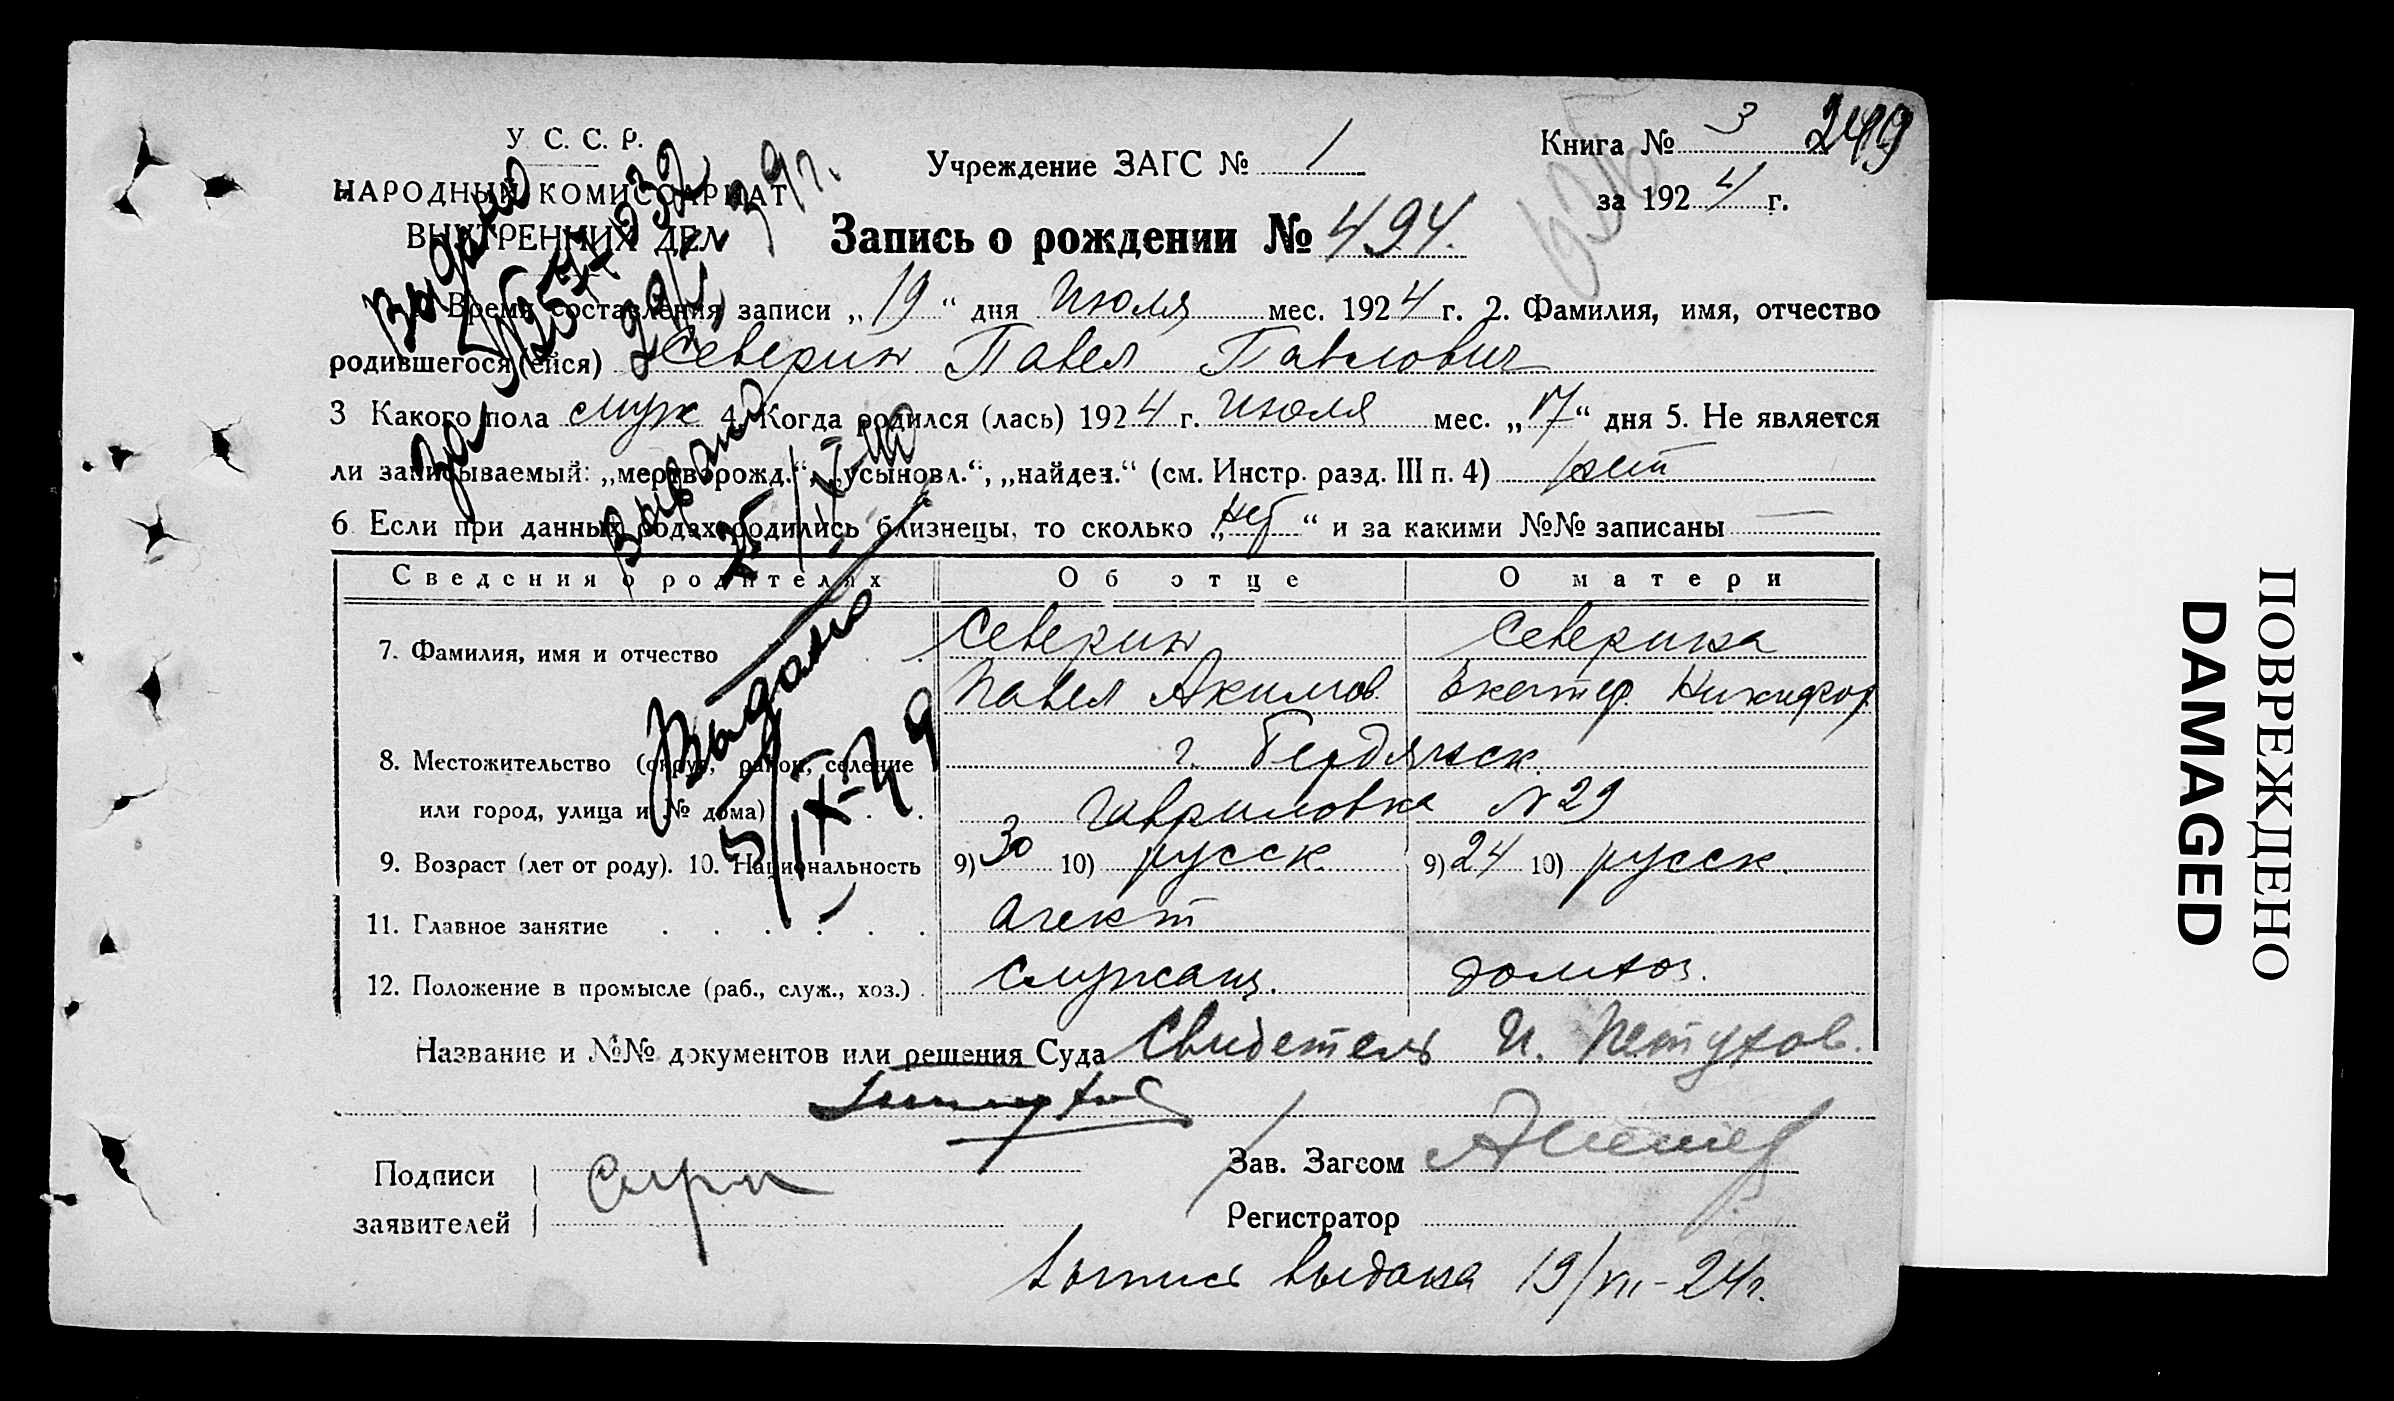 У. С. С. Р.
НАРОДНЫЙ КОМИССАРИАТ
ВНУТРЕННИХ ДЕЛ
Учреждение ЗАГС № 1
Книга № 3 249
за 1924 г.
Запись о рождении № 494.
1. Время составления записи „19“ дня Июля мес. 1924 г. 2. Фамилия, имя, отчество
родившегося (ейся) Северин Павел Павлович
3 Какого пола муж 4. Когда родился (лась) 1924 г. Июля мес. „17“ дня 5. Не является
ли записываемый: „мертворожд.“, „усыновл.“, „найден.“ (см. Инстр. разд. III п. 4) нет
6. Если при данных родах родились близнецы, то сколько „нет“ и за какими №№ записаны —
Сведения о родителях Об отце О матери
7. Фамилия, имя и отчество Северин Северина
Павел Акимов. Екатер. Никифор.
8. Местожительство (округ, район, селение г. Бердянск.
или город, улица и № дома) Гавриловка № 29
9. Возраст (лет от роду). 10. Национальность 9) 30 10) русск. 9) 24 10) русск.
11. Главное занятие агент
12. Положение в промысле (раб., служ., хоз.) служащ. домхоз.
Название и №№ документов или решения Суда Свидетель И. Петухов.
Подписи
заявителей
Зав. Загсом
Регистратор
Выпись выдана 19/VII-24г.
Выдано
Выдано
25/IX-40
Выдано
5/IX-39
ПОВРЕЖДЕНО
DAMAGED